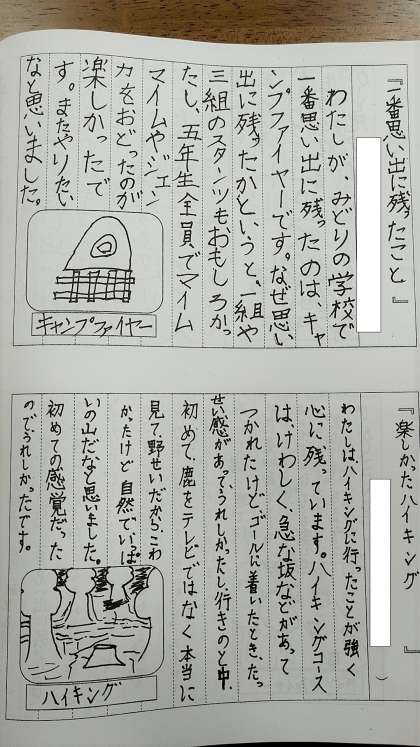 『一番思い出に残ったこと』
わたしが、みどりの学校で
一番思い出に残ったのは、キャ
ンプファイヤーです。なぜ思い
出に残ったかというと、一組や
三組のスタンツもおもしろかっ
たし、五年生全員でマイム
マイムやジェン
カをおどったのが
楽しかったで
す。またやりたい
なと思いました。
キャンプファイヤー
『楽しかたハイキング』
わたしはハイキングに行ったことが強く
心に残っています。ハイキングコース
はけわしく、急な坂などがあって
つかれたけど、ゴールに着いたとき、たっ
せい感があって、うれしかったし、行きのと中、
初めて、鹿をテレビではなく本当に
見て、野せいだから、こわ
かったけど自然でいっぱ
いの山だなと思いました。
初めての感覚だった
のでうれしかったです。
ハイキング